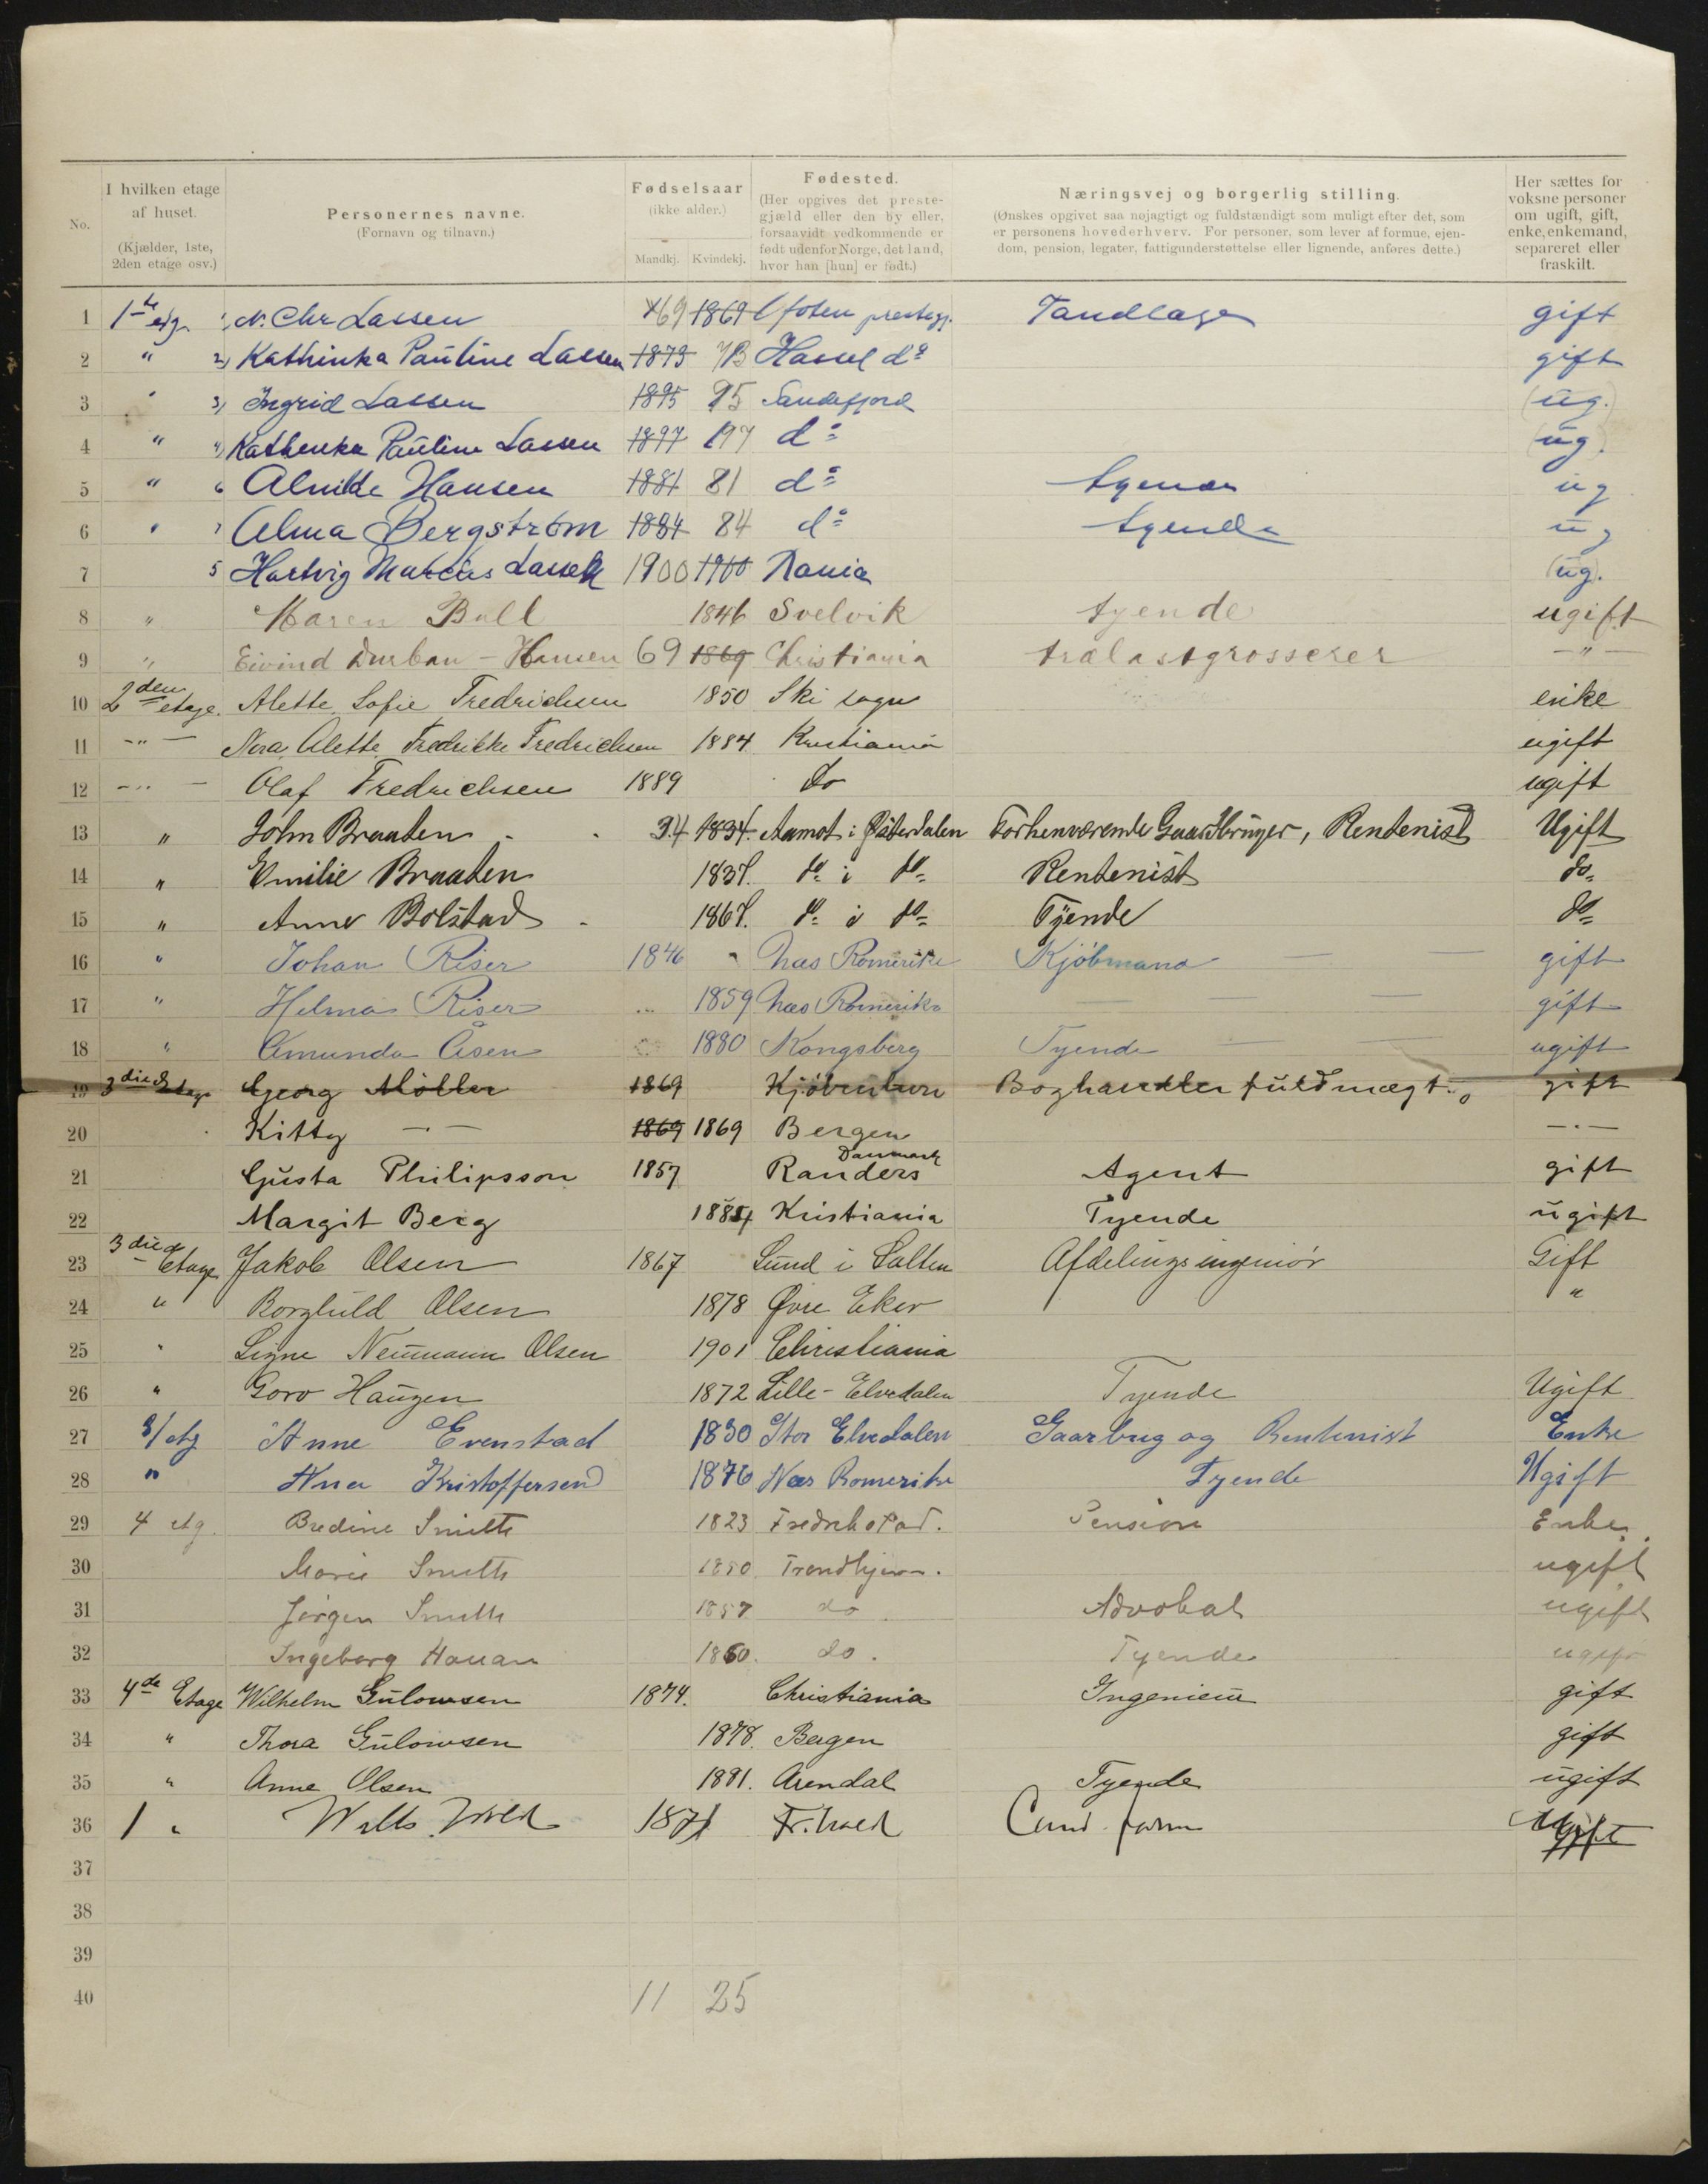 No. I hvilken etage af huset. (Kjælder, 1ste, 2den etage osv.) Personernes navne. (Fornavn og tilnavn.) Fødselsaar (ikke alder.) Mandkj. Kvindekj. Fødested. (Her opgives det prestegjæld eller den by eller, forsaavidt vedkommende er født udenfor Norge, det land, hvor han [hun] er født.) Næringsvej og borgerlig stilling. (Ønskes opgivet saa nøjagtigt og fuldstændigt som muligt efter det, som er personens hovederhverv. For personer, som lever af formue, ejendom, pension, legater, fattigunderstøttelse eller lignende, anføres dette.) Her sættes for voksne personer om ugift, gift, enke, enkemand, separeret eller fraskilt.
1 1ste etg. 1, N. Chr Lassen 69 1869 Ofoten prestegj. Tandlæge gift
2 " 2, Kathinka Pauline Lassen 1873 73 Hassel do gift
3 " 3, Ingrid Lassen 1895 95 Sandefjord (ug.)
4 " 4, Kathenka Pauline Lassen 1897 97 do (ug.)
5 " 6 Hansen 1881 81 do tyende ug
6 " 7 Alma Bergstrøm 1884 84 do tyende ug
7 5 Hartvig Marcus Lassen 1900 1900 Krania (ug).
8 " Maren Bull 1846 Svelvik tyende ugift
9 " Eivind Durban-Hansen 69 1869 Christiania trælastgrosserer — " —
10 2den etage. Alette Sofie Fredrichsen 1850 Ski sogn enke
11 — " — Nora Alette Fredrikke Fredrichsen 1884 Kristiania ugift
12 — " — Olaf Fredrichsen 1889 do ugift
13 " John Braaten 34 1834. Aamot i Østerdalen Forhenværende Gaardbruger, Rentenist Ugift
14 " Emilie Braaten 1837. do i do Rentenist do
15 " Anne Bolstad 1867. do i do Tyende do
16 " Johan Riser 1846 " Næs Romerike Kjøbmand gift
17 " Helma Riser ... 1859 Næs Romerike gift
18 " Amunda Åsen 1880 Kongsberg Tyende ugift
19 3die Etage Georg Møller 1869 Kjøbenhavn Boghandler fuldmægt. gift
20 Kitty — " — 1869 1869 Bergen — " —
21 Gusta Philipsson 1857 Randers Danmark Agent gift
22 Margit Berg 1884 Kristiania Tyende ugift
23 3die Etage Jakob Olsen 1867 Lund i Salten Afdelingsingeniør Gift
24 " Borghild Olsen 1878 Øvre Eker "
25 " Signe Neumann Olsen 1901 Christiania
26 " Goro Haugen 1872 Lille-Elvedalen Tyende Ugift
27 3/etg Anne Evenstad 1830 Stor Elvedalen Gaarbrug og Rentenist Enke
28 " Anna Kristoffersen 1876 Næs Romerike Tyende Ugift
29 4 etg. Bredine Smith 1823 Fredrikstad. Pension Enke.
30 Marie Smith 1850 Trondhjem. ugift
31 Jørgen Smith 1857 do. Advokat ugift
32 Ingeborg Hauan 1860. do. Tyende ugift
33 4de Etage Wilhelm Gulowsen 1874. Christiania Ingenieur gift
34 " Thora Gulowsen 1878. Bergen gift
35 " Anne Olsen 1881. Arendal Tyende ugift
36 1 " 1871 Fr.hald Cand. farm Ugift
37
38
39
40 11 25